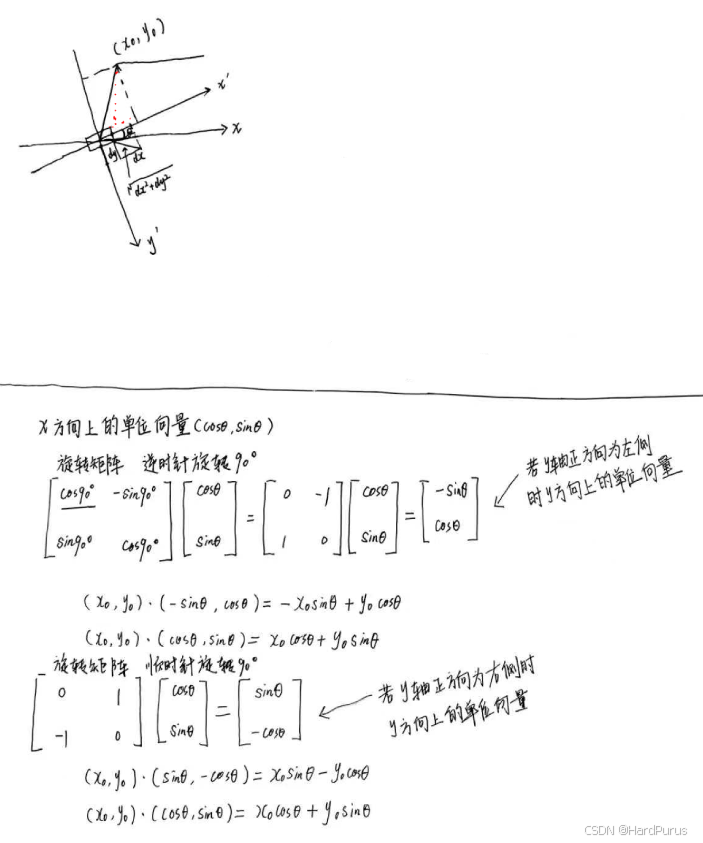 (x₀, y₀)
x'
x
θ
dy
dx
√dx²+dy²
y'
x方向上的单位向量(cosθ, sinθ)
旋转矩阵 逆时针旋转90°
[cos90° -sin90°; sin90° cos90°] [cosθ; sinθ] = [0 -1; 1 0] [cosθ; sinθ] = [-sinθ; cosθ]
若y轴正方向为左侧
时y方向上的单位向量
(x₀, y₀)·(-sinθ, cosθ) = -x₀sinθ + y₀cosθ
(x₀, y₀)·(cosθ, sinθ) = x₀cosθ + y₀sinθ
旋转矩阵 顺时针旋转90°
[0 1; -1 0] [cosθ; sinθ] = [sinθ; -cosθ]
若y轴正方向为右侧时
y方向上的单位向量
(x₀, y₀)·(sinθ, -cosθ) = x₀sinθ - y₀cosθ
(x₀, y₀)·(cosθ, sinθ) = x₀cosθ + y₀sinθ
CSDN @HardPurus